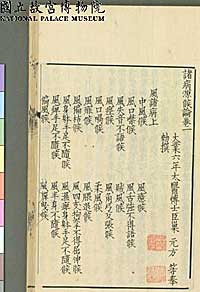 國立故宮博物院
NATIONAL PALACE MUSEUM
諸病源候論卷一
大業六年太醫博士臣巢 元方 等奉
勑撰
風諸病上
中風候 風癔候
風口噤候 風舌強不得語候
風失音不語候 賊風候
風痙候 風角弓反張候
風口喎候 柔風候
風偏枯候 風四支拘攣不得屈伸候
風身體手足不隨候 風濕痹身體手足不隨候
風痹手足不隨候 風半身不隨候
偏風候